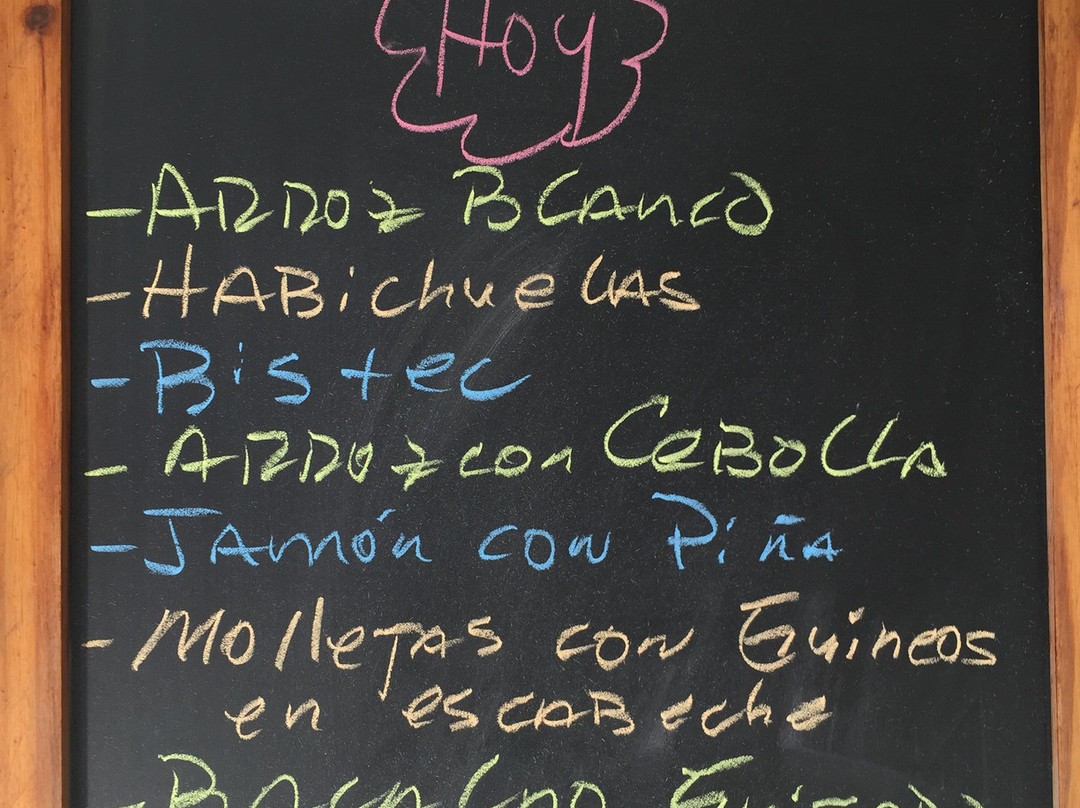 Hoy
- ARROZ BLANCO
- HABichuelAS
- Bistec
- ARROZ con CeBOLLA
- JAmón con Piña
- MollejAS con Guineos
en escABeche
- BACALAO Guisado